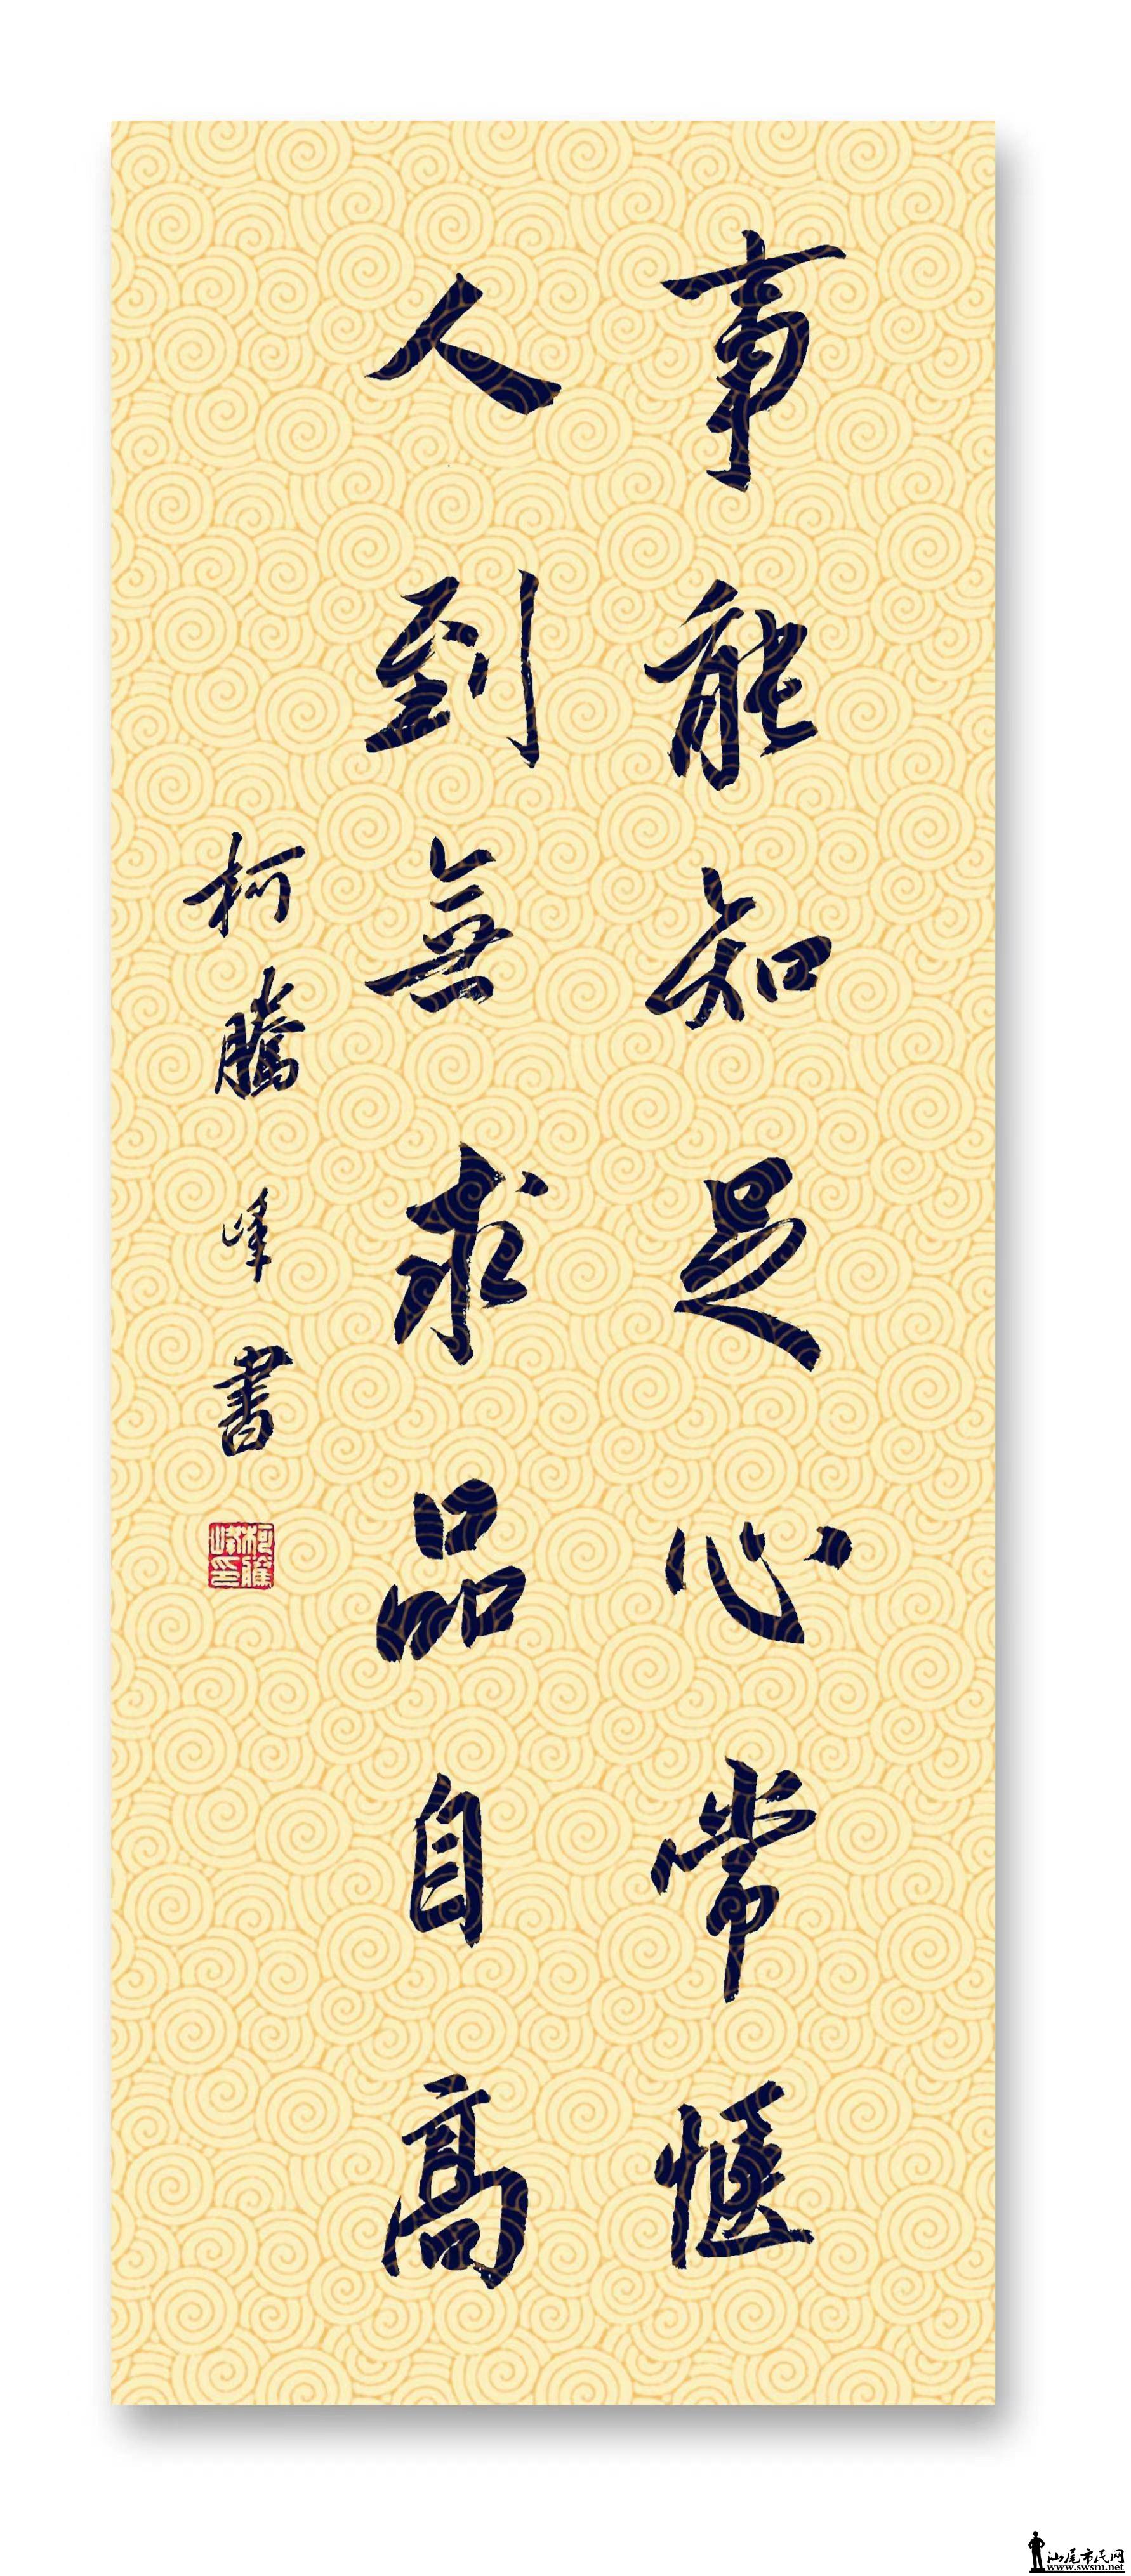 事能知足心常愜
人到無求品自高
柯騰峰書
柯騰峰印
汕尾市民网
www.swsm.net